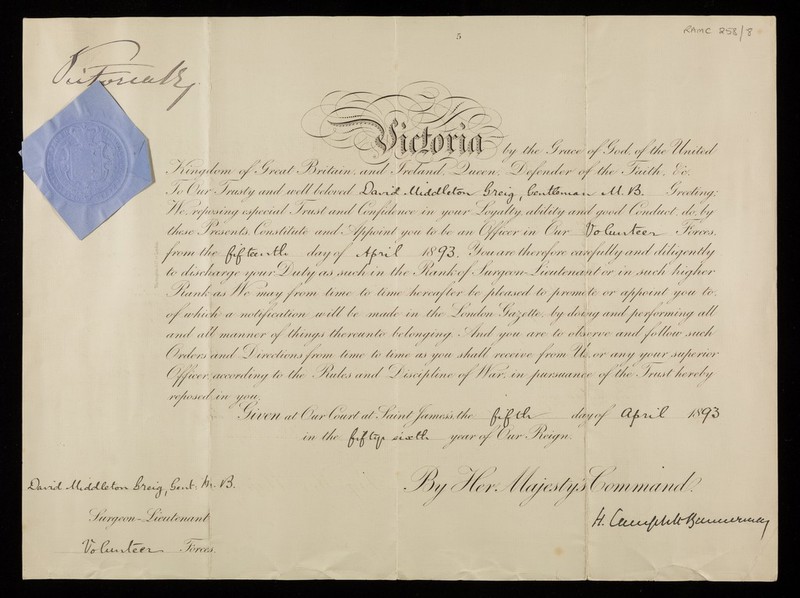 5
RAMC 258/8
Victoria R
Victoria by the Grace of God, of the United
Kingdom of Great Britain, and Ireland, Queen, Defender of the Faith, &c.
To Our Trusty and well beloved David Middleton Greig, Gentleman M.B. Greeting;
We, reposing especial Trust and Confidence in your Loyalty, ability and good Conduct, do, by
these Presents, Constitute and Appoint you to be an Officer in Our Volunteer Forces,
from the fifteenth day of April 1893. You are therefore carefully and diligently
to discharge your Duty as such in the Rank of Surgeon-Lieutenant or in such higher
Rank as We may from time to time hereafter be pleased to promote or appoint you to,
of which a notification will be made in the London Gazette, by doing and performing all
and all manner of things thereunto belonging. And you are to observe and follow such
Orders and Directions from time to time as you shall receive from Us, or any your superior
Officer, according to the Rules and Discipline of War, in pursuance of the Trust hereby
reposed in you.
Given at Our Court at Saint James's, the fifth day of April 1893
in the fifty sixth year of Our Reign.
By Her Majesty's Command.
H. Campbell-Bannerman
David Middleton Greig, Gent. M. B.
Surgeon-Lieutenant
Volunteer Forces.